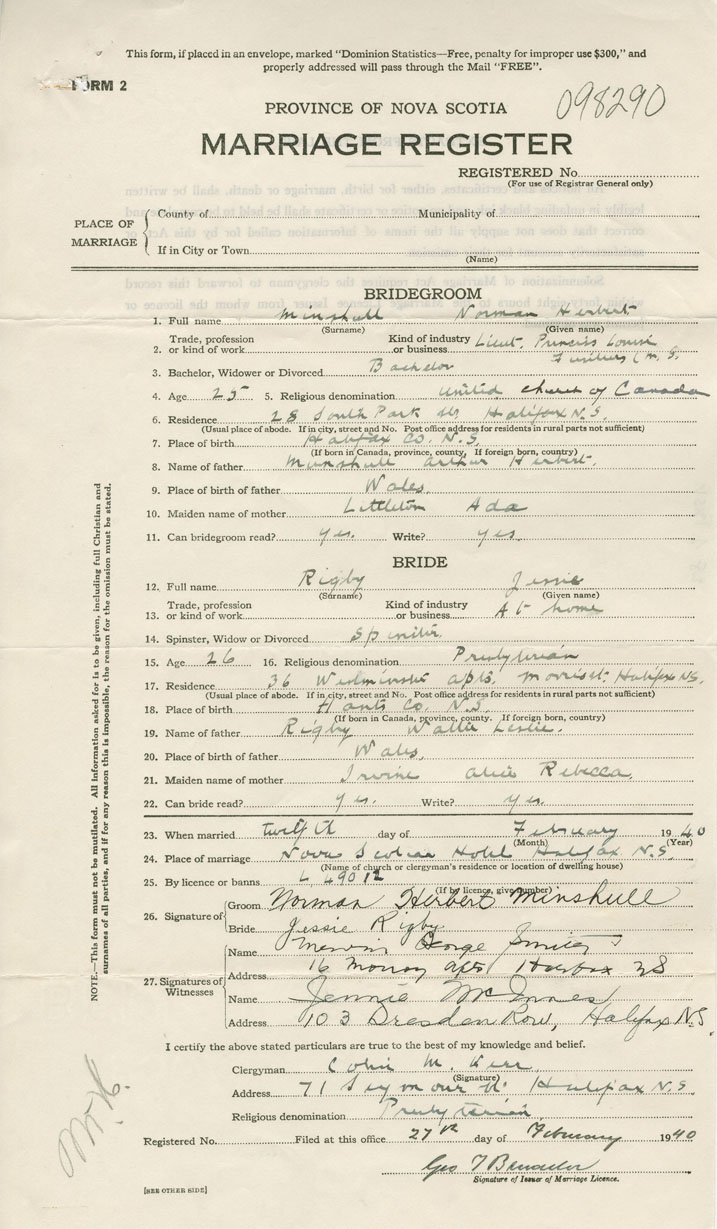 This form, if placed in an envelope, marked "Dominion Statistics—Free, penalty for improper use $300," and
properly addressed will pass through the Mail "FREE".
FORM 2
098290
PROVINCE OF NOVA SCOTIA
MARRIAGE REGISTER
REGISTERED No.
(For use of Registrar General only)
PLACE OF MARRIAGE
County of Municipality of
If in City or Town
(Name)
BRIDEGROOM
1. Full name Minshull Norman Herbert
(Surname) (Given name)
2. Trade, profession or kind of work Kind of industry or business Lieut. Princess Louise
Fusiliers (M.G.
3. Bachelor, Widower or Divorced Bachelor
4. Age 25 5. Religious denomination United Church of Canada
6. Residence 28 South Park St., Halifax N.S.
(Usual place of abode. If in city, street and No. Post office address for residents in rural parts not sufficient)
7. Place of birth Halifax Co. N.S.
(If born in Canada, province, county, If foreign born, country)
8. Name of father Minshull Arthur Herbert.
9. Place of birth of father Wales
10. Maiden name of mother Littleton Ada
11. Can bridegroom read? yes. Write? yes
BRIDE
12. Full name Rigby Jessie
(Surname) (Given name)
13. Trade, profession or kind of work Kind of industry or business At home
14. Spinster, Widow or Divorced Spinster
15. Age 26 16. Religious denomination Presbyterian
17. Residence 36 Westminster apts. Morris st. Halifax N.S.
(Usual place of abode. If in city, street and No. Post office address for residents in rural parts not sufficient)
18. Place of birth Hants Co. N.S.
(If born in Canada, province, county. If foreign born, country)
19. Name of father Rigby Walter Leslie.
20. Place of birth of father Wales
21. Maiden name of mother Irvine Alice Rebecca
22. Can bride read? yes. Write? yes.
23. When married twelfth day of February 1940
(Month) (Year)
24. Place of marriage Nova Scotian Hotel Halifax N.S.
(Name of church or clergyman's residence or location of dwelling house)
25. By licence or banns L 49012
(If by licence, give number)
26. Signature of Groom Norman Herbert Minshull
Bride Jessie Rigby
27. Signatures of Witnesses
Name George
Address 16 apts Halifax NS
Name Jennie McInnes
Address 103 Dresden Row, Halifax N.S.
I certify the above stated particulars are true to the best of my knowledge and belief.
Clergyman Colin M. Kerr
(Signature)
Address 71 Seymour St. Halifax N.S.
Religious denomination Presbyterian
Registered No. Filed at this office 27th day of February 1940
Geo
Signature of Issuer of Marriage Licence.
[SEE OTHER SIDE]
NOTE.—This form must not be mutilated. All Information asked for is to be given, including full Christian and
surnames of all parties, and if for any reason this is impossible, the reason for the omission must be stated.